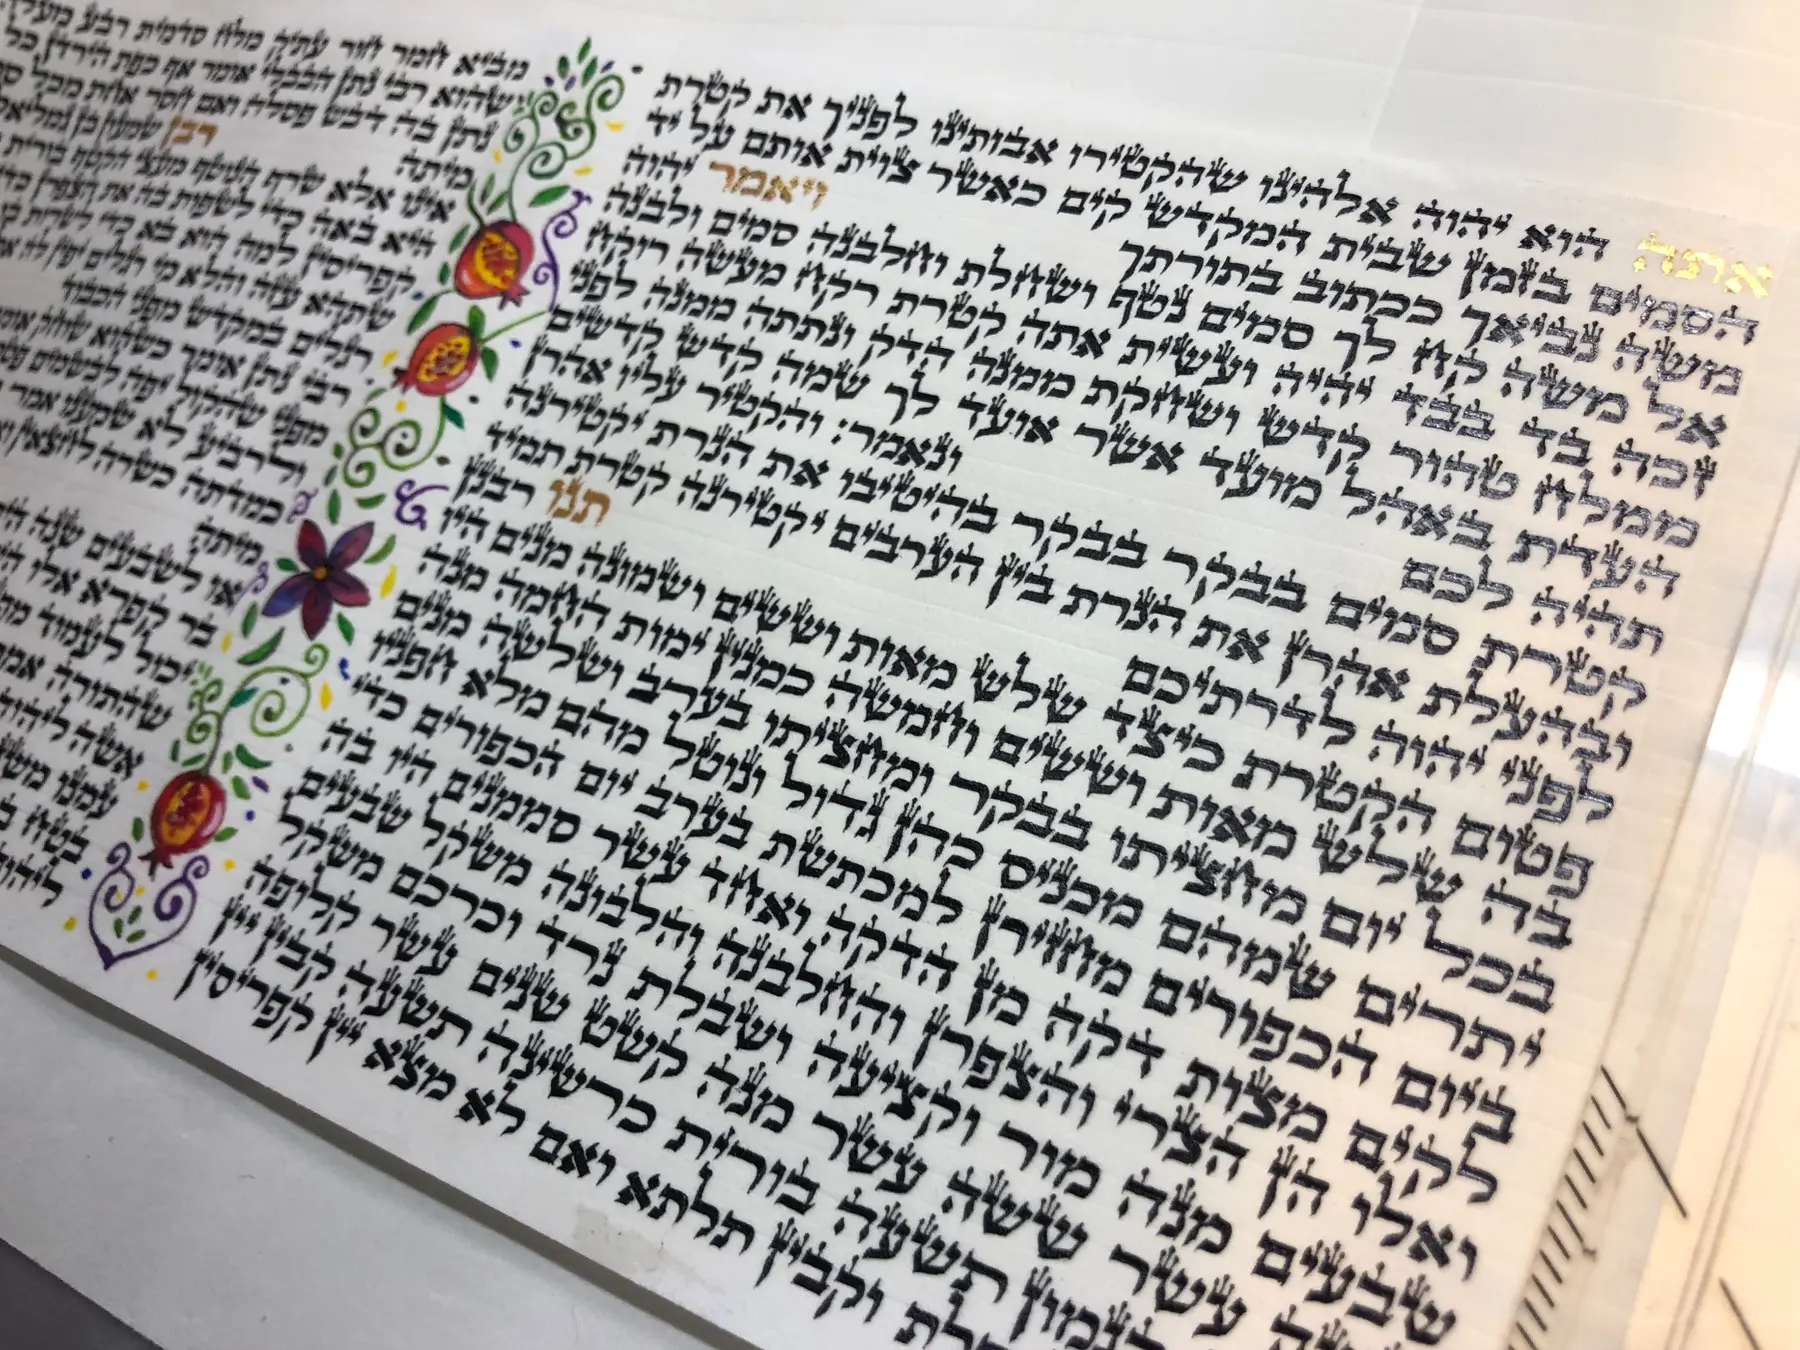 אתה הוא יהוה אלהינו שהקטירו אבותינו לפניך את קטרת
הסמים בזמן שבית המקדש קים כאשר צוית אותם על יד
משה נביאך ככתוב בתורתך ויאמר יהוה
אל משה קח לך סמים נטף ושחלת וחלבנה סמים ולבנה
זכה בד בבד יהיה ועשית אתה קטרת רקח מעשה רוקח
ממלח טהור קדש ושחקת ממנה הדק ונתתה ממנה לפני
העדת באהל מועד אשר אועד לך שמה קדש קדשים
תהיה לכם ונאמר: והקטיר עליו אהרן
קטרת סמים בבקר בבקר בהיטיבו את הנרת יקטירנה
ובהעלת אהרן את הנרת בין הערבים יקטירנה קטרת תמיד
לפני יהוה לדרתיכם תנו רבנן
פטום הקטרת כיצד שלש מאות וששים ושמונה מנים היו
בה שלש מאות וששים וחמשה כמנין ימות החמה מנה
בכל יום מחציתו בבקר ומחציתו בערב ושלשה מנים
יתרים שמהם מכניס כהן גדול ונוטל מהם מלא חפניו
ביום הכפורים מחזירן למכתשת בערב יום הכפורים כדי
לקים מצות דקה מן הדקה ואחד עשר סממנים היו בה
ואלו הן הצרי והצפרן והחלבנה והלבונה משקל שבעים
שבעים מנה מור וקציעה ושבלת נרד וכרכם משקל
עשר ששה עשר מנה קשט שנים עשר קלופה
קנמון תשעה בורית כרשינה תשעה קבין יין
וקבין תלתא ואם לא מצא יין קפריסין
מביא חמר חור עתיק מלח סדמית רבע
שהוא רבי נתן הבבלי אומר אף כפת הירדן כל
נתן בה דבש פסלה ואם חסר אחת מכל
מיתה רבן שמעון בן גמליאל
אינו אלא שרף הנוטף מעצי הקטף בורית
היא באה כדי לשפות בה את הצפרן כדי
קפריסין למה הוא בא כדי לשרות בו
שתהא עזה והלא מי רגלים יפין לה
רגלים במקדש מפני הכבוד
רבי נתן אומר כשהוא שוחק אומר
מפני שהקול יפה לבשמים
ולרביע לא שמענו אמר
כמדתה כשרה לחצאין
מיתה
או לשבעים שנה
בר קפרא אלו
יכול לעמוד
שהתורה אמרה
אשה ליהוה
עמנו